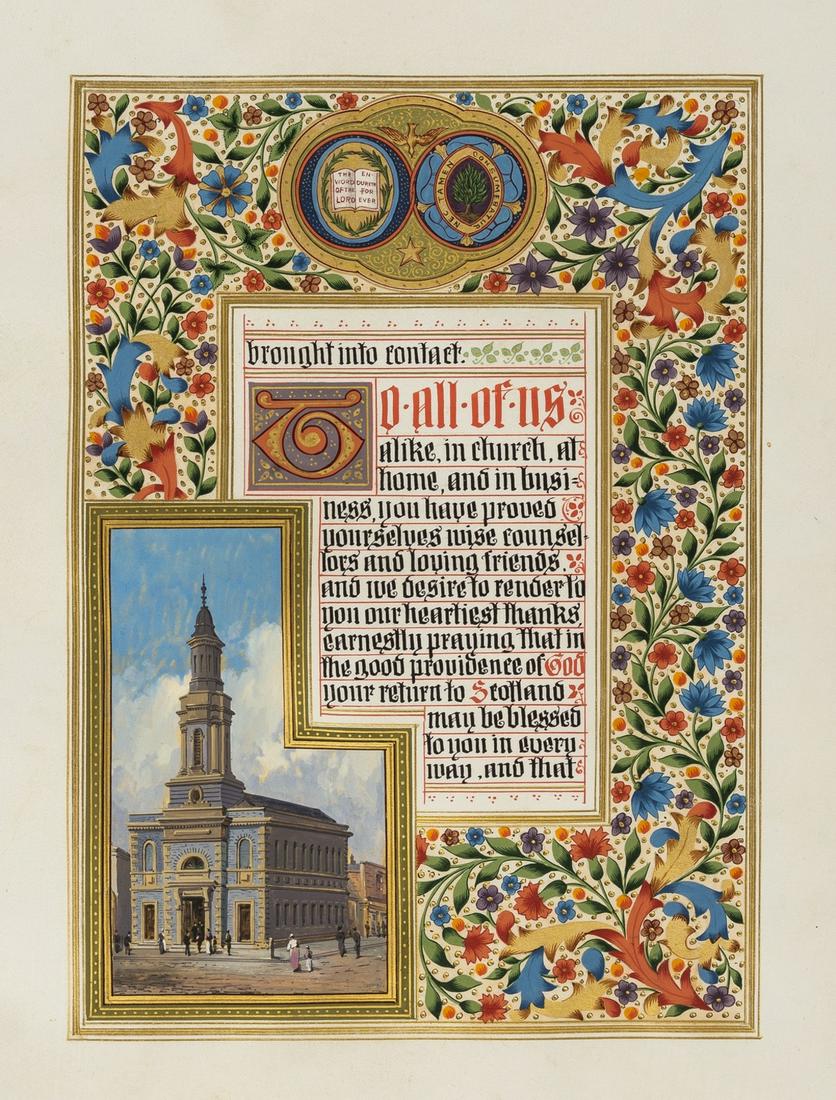 THE EN-
WORD DURETH
OF THE FOR
LORD EVER
NEC TAMEN CONSUMEBATUR
brought into contact.
To·all·of·us
alike, in church, at
home, and in busi=
ness, you have proved
yourselves wise counsel-
lors and loving friends,
and we desire to render to
you our heartiest thanks,
earnestly praying that in
the good providence of God
your return to Scotland
may be blessed
to you in every
way, and that